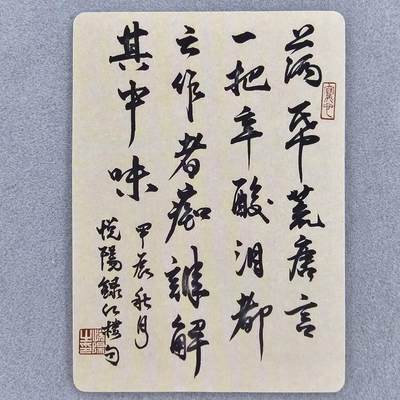 满帋荒唐言
一把辛酸泪都
云作者痴誰解
其中味
甲辰秋月
悦陽録红楼句